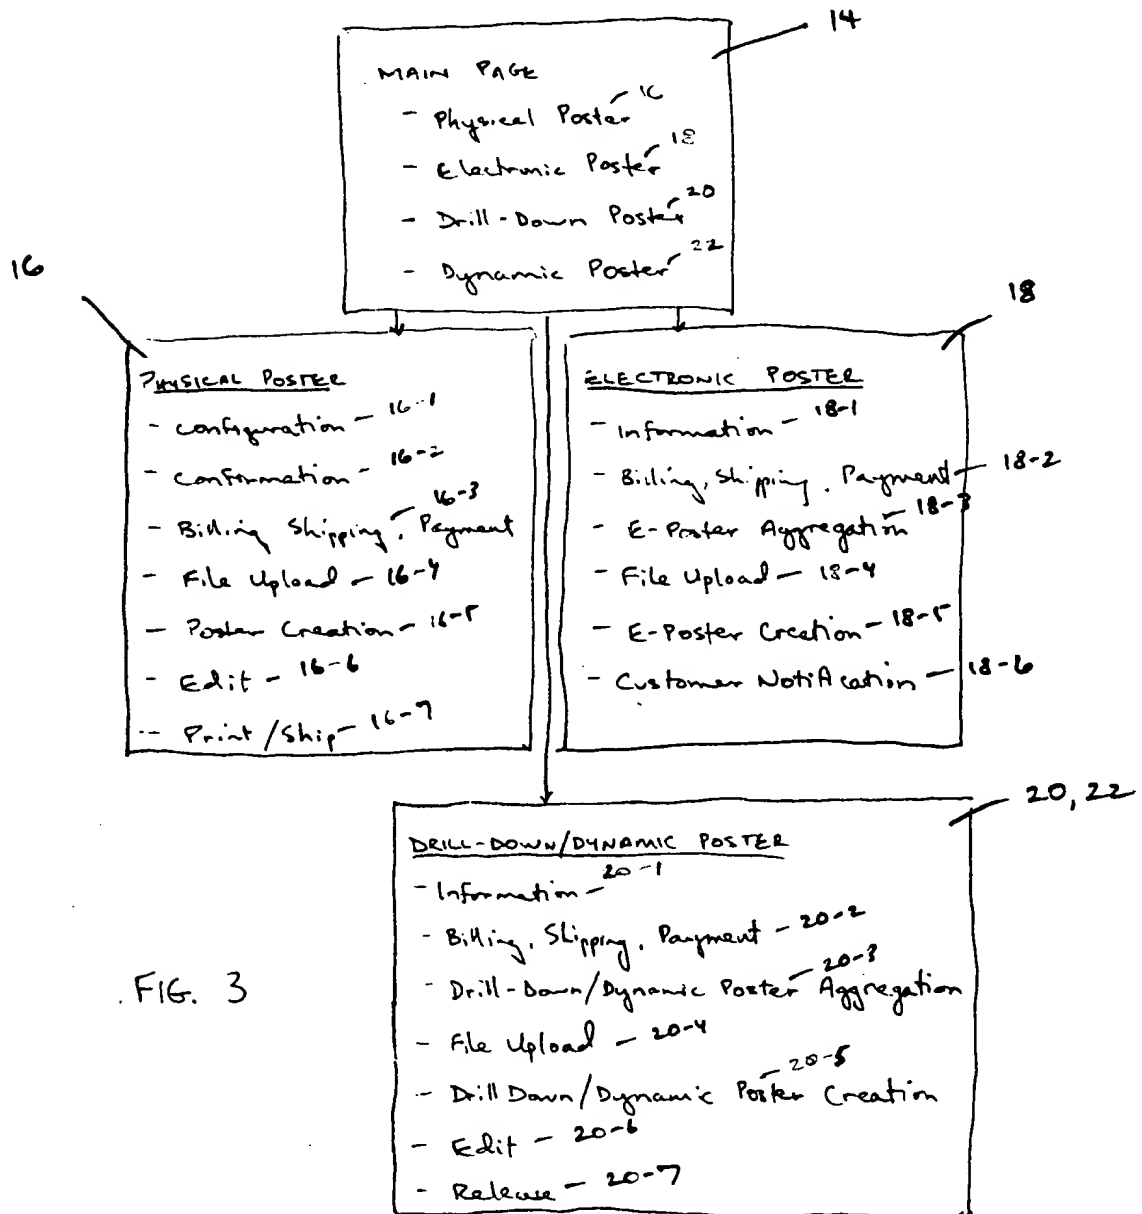 14
MAIN PAGE
- Physical Poster 16
- Electronic Poster 18
- Drill-Down Poster 20
- Dynamic Poster 22
16
PHYSICAL POSTER
- Configuration - 16-1
- Confirmation - 16-2
- Billing, Shipping, Payment 16-3
- File Upload - 16-4
- Poster Creation - 16-5
- Edit - 16-6
- Print/Ship - 16-7
18
ELECTRONIC POSTER
- Information - 18-1
- Billing, Shipping, Payment - 18-2
- E-Poster Aggregation - 18-3
- File Upload - 18-4
- E-Poster Creation - 18-5
- Customer Notification - 18-6
20, 22
DRILL-DOWN/DYNAMIC POSTER
- Information - 20-1
- Billing, Shipping, Payment - 20-2
- Drill-Down/Dynamic Poster Aggregation - 20-3
- File Upload - 20-4
- Drill Down/Dynamic Poster Creation - 20-5
- Edit - 20-6
- Release - 20-7
FIG. 3